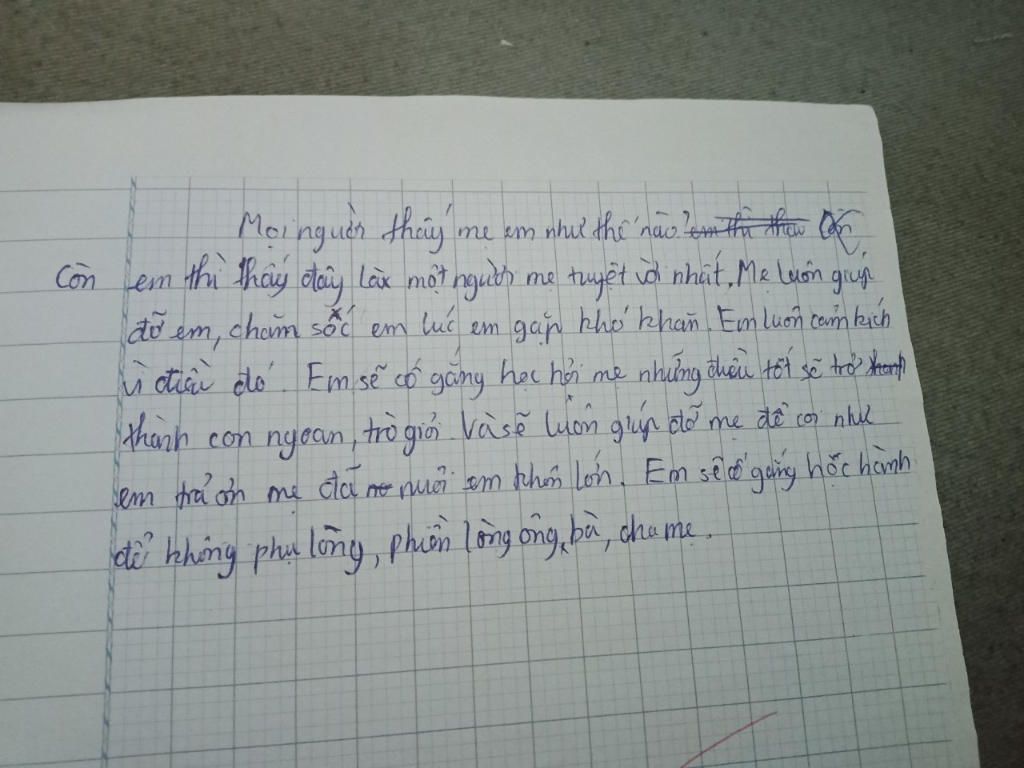 Mọi người thấy mẹ em như thế nào? em thì thấy
Còn em thì thấy đây là một người mẹ tuyệt vời nhất. Mẹ luôn giúp
đỡ em, chăm sóc em lúc em gặp khó khăn. Em luôn cảm kích
vì điều đó. Em sẽ cố gắng học hỏi mẹ những điều tốt sẽ trở
thành con ngoan, trò giỏi. Và sẽ luôn giúp đỡ mẹ để coi như
em trả ơn mẹ đã nuôi em khôn lớn. Em sẽ cố gắng học hành
để không phụ lòng, phiền lòng ông, bà, cha mẹ.